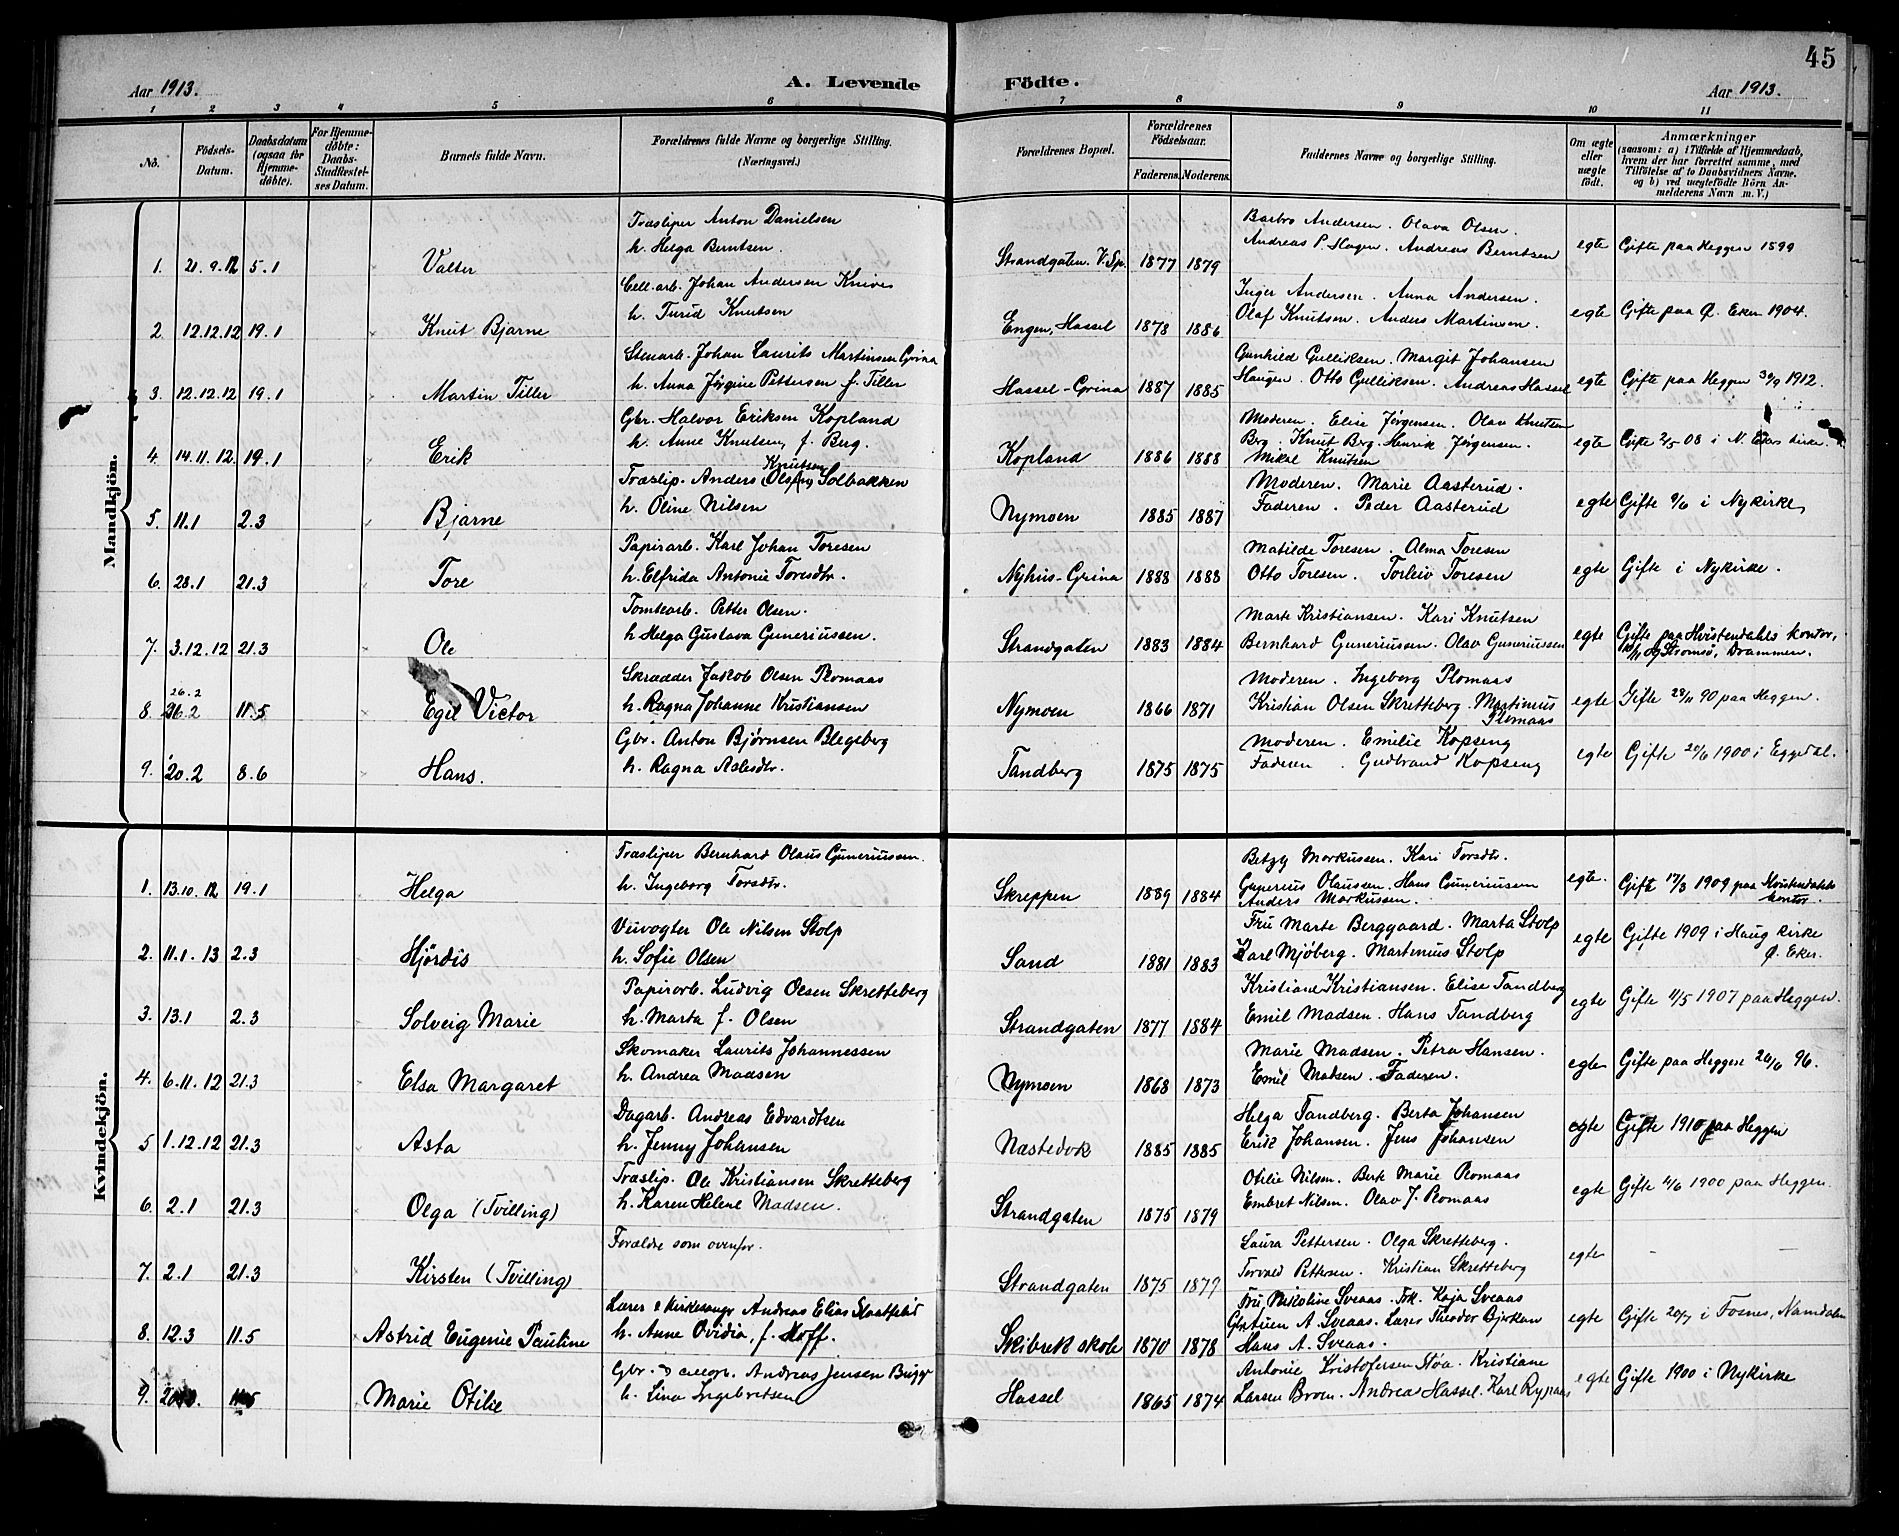 45
Aar 1913. A. Levende Födte. Aar 1913.
1 2 3 4 5 6 7 8 9 10 11
No.
Födsels-Datum.
Daabsdatum (ogsaa for Hjemme-döbte).
For Hjemme-döbte: Daabs-Stadfæstel-ses Datum.
Barnets fulde Navn.
Forældrenes fulde Navne og borgerlige Stilling. (Næringsvei.)
Forældrenes Bopæl.
Forældrenes Födselsaar.
Faderens. Moderens.
Faddernes Navne og borgerlige Stilling.
Om ægte eller uægte födt.
Anmærkninger
(saasom: a) i Tilfælde af Hjemmedaab,
hvem der har forrettet samme, med
Tilföielse af to Daabsvidners Navne.
og b) ved uægtefödte Börn An-
melderens Navn m. V.)
Mandkjön.
Træsliper Anton Danielsen Barbro Andersen. Olava Olsen.
h. Helga Berntsen. Andreas P. Hagen. Andreas Berntsen
1. 21.9.12 5.1 Valter Strandgaten. V.Sp. 1877 1879 egte Gifte paa Heggen 1899
Cell.arb. Johan Andersen Knive Inger Andersen. Anna Andersen.
h. Turid Knutsen Olaf Knutsen. Anders Martinsen.
2. 12.12.12 19.1 Knut Bjarne Engen, Hassel 1878 1886 egte Gifte paa Ø. Eker 1904.
Stenarb. Johan Laurits Martinsen Grina Gunhild Gulliksen. Margit Johansen
h. Anna Jørgine Pettersen f. Tiller Haugen. Otto Gulliksen. Andreas Hassel
3. 12.12.12 19.1 Martin Tiller Hassel-Grina 1887 1885 egte Gifte paa Heggen 30/9 1912.
Gbr. Halvor Eriksen Kopland Moderen. Elise Jørgensen. Olav Knutsen
h. Anne Knutsen, f. Berg. Berg. Knut Berg. Henrik Jørgensen. Mikal Knutsen
4. 14.11.12. 19.1 Erik Kopland 1886 1888 egte Gifte 2/5 08 i N. Ekers kirke.
Træslip. Anders Knutsen (Olsen) Solbakken Moderen. Marie Aasterud.
h. Oline Nilsen Faderen. Peder Aasterud
5. 11.1 2.3 Bjarne Nymoen 1885 1887 egte Gifte 9/6 i Nykirke
Papirarb. Karl Johan Toresen Matilde Toresen. Alma Toresen
h. Elfrida Antonie Toresdtr. Otto Toresen. Torleiv Toresen
6. 28.1 21.3 Tore Nyhus-Grina 1888 1888 egte Gifte i Nykirke.
Tomtearb. Petter Olsen. Marte Kristiansen. Kari Knutsen
h. Helga Gustava Guneriussen. Bernhard Guneriussen. Olav Guneriussen
7. 3.12.12 21.3 Ole Strandgaten 1883 1884 egte Gifte paa Hvistendahls kontor, Strømsø, Drammen.
Skrædder Jakob Olsen Plomaas Moderen. Ingeborg Plomaas
h. Ragna Johanne Kristiansen Kristian Olsen Skretteberg. Martinius Plomaas
8. 26.2 26.2 11.5 Egil Victor Nymoen 1866 1871 egte Gifte 28/11 90 paa Heggen.
Gbr. Anton Bjørnsen Blegeberg Moderen. Emilie Kopseng
h. Ragna Aslesdtr. Faderen. Gudbrand Kopseng
9. 20.2 8.6 Hans. Tandberg 1875 1875 egte Gifte 20/6 1900 i Eggedal.
Kvindekjön.
Træsliper Bernhard Olaus Guneriussen. Betzy Markussen. Kari Torsdtr.
h. Ingeborg Torsdtr. Gunerius Olaussen. Hans Guneriussen Anders Markussen.
1. 13.10.12 19.1 Helga Skreppen 1889 1884 egte. Gifte 17/3 1909 paa Hvistendahls kontor.
Veivogter Ole Nilsen Stolp Fru Marte Berggaard. Marta Stolp
h. Sofie Olsen Karl Mjøberg. Martinius Stolp
2. 11.1.13 2.3 Hjørdis Sand 1881 1883 egte Gifte 1909 i Haug kirke Ø. Eker.
Papirarb. Ludvig Olsen Skretteberg Kristiane Kristiansen. Elise Tandberg
h. Marta f. Olsen Emil Madsen. Hans Tandberg
3. 13.1 2.3 Solveig Marie Strandgaten 1877 1884 egte Gifte 11/5 1907 paa Heggen.
Skomaker Laurits Johannessen Marie Madsen. Petra Hansen.
h. Andrea Madsen Emil Madsen. Faderen.
4. 6.11.12 21.3 Elsa Margaret Nymoen 1868 1873 egte Gifte paa Heggen 26/6 96.
Dagarb. Andreas Edvardtsen Helga Tandberg. Berta Johansen
h. Jenny Johansen Erik Johansen. Jens Johansen
5 1.12.12 21.3 Asta Næstedvok 1885 1885 egte Gifte 1910 paa Heggen
Træslip. Ole Kristiansen Skretteberg Otilie Nilsen. Berte Marie Plomaas
h. Karen Helene Madsen. Embret Nilsen. Olav J. Plomaas
6. 2.1 21.3 Olga (Tvilling) Strandgaten 1875 1879 egte Gifte 4/6 1900 paa Heggen.
Forældre som ovenfor. Laura Pettersen. Olga Skretteberg.
Torvald Pettersen. Kristian Skretteberg
7. 2.1 21.3 Kirsten (Tvilling) Strandgaten 1875 1879 egte - -
Lærer & Kirkesangr Andreas Elias Fru Nikoline Sveaas. Frk. Kaja Sveaas
h. Anne Ovidia, f. Hoff. A. Sveaas. Lærer Theodor Bjerkan Hans A. Sveaas.
8. 12.3 11.5 Astrid Eugenie Pauline Skibrek skole 1870 1878 egte Gifte 20/7 i Fosnes, Namdalen
Gbr. Andreas Jensen Bugge Antonie Kristofersen Støa. Kristiane
h. Lina Ingebretsen Larsen Broen. Andrea Hassel. Karl Rypaas
9. Marie Otilie Hassel 1865 1874 egte Gifte 1900 i Nykirke